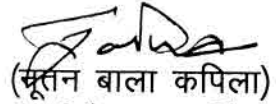 (नूतन बाला कपिला)